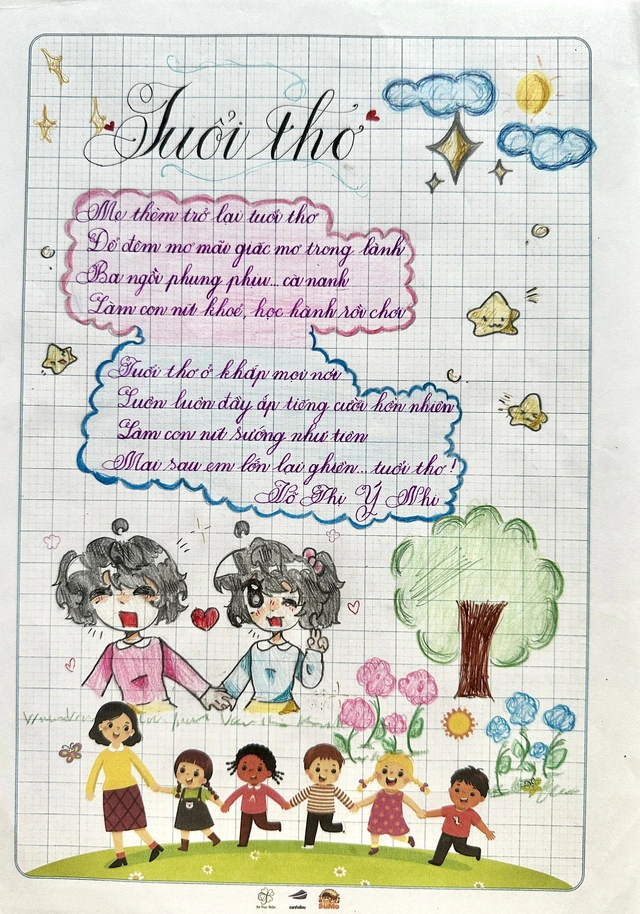 Tuổi thơ
Mẹ thèm trở lại tuổi thơ
Để đêm mơ mãi giấc mơ trong lành
Ba ngồi phụng phịu... cà nanh
Làm con nít khoẻ, học hành rồi chơi
Tuổi thơ ở khắp mọi nơi
Luôn luôn đầy ắp tiếng cười hồn nhiên
Làm con nít sướng như tiên
Mai sau em lớn lại ghiền... tuổi thơ!
Võ Thị Ý Nhi